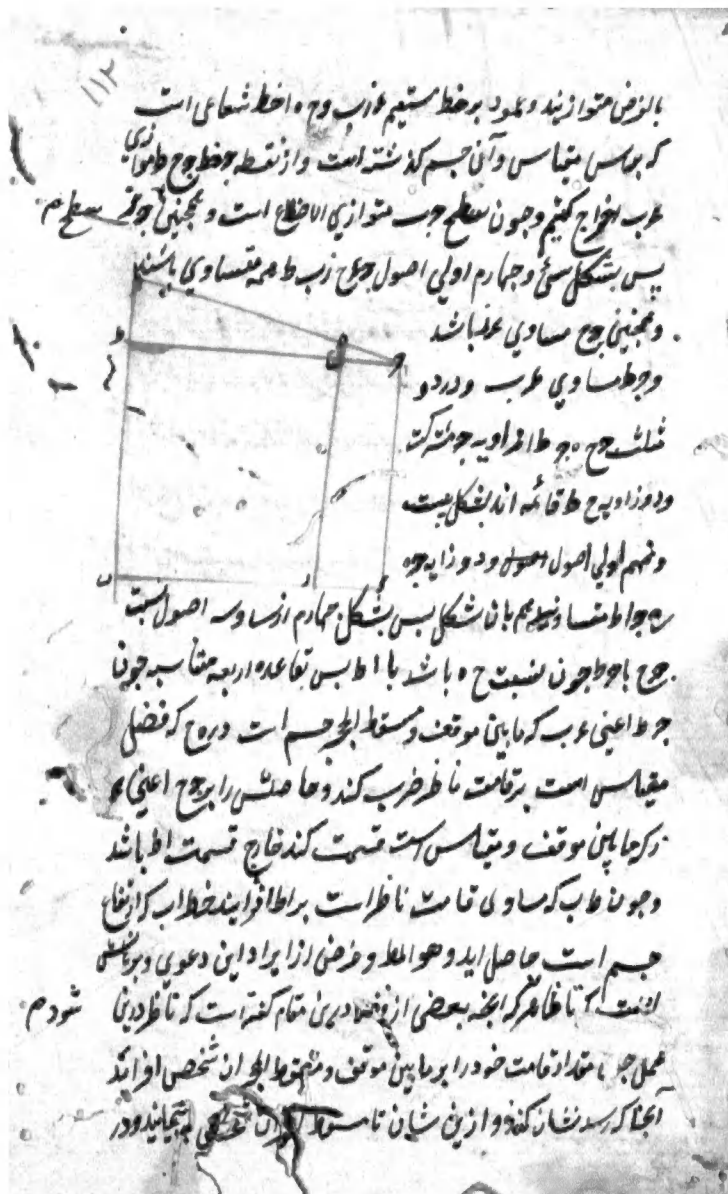 ۱۱۲
بالفرض متوازیند و عمود بر خط مستقیم ع ز ب و ح ه ا خط شعاعی است
که براس مقیاس و آن جسم گذشته است و از نقطه ج خط ج ح ط موازی
ع ب اخراج کنیم و چون سطح ج ب متوازی الاضلاع است و همچنین سطح م
پس بشکل سی و چهارم اولی اصول ز ب ط همه متساوی باشند
و همچنین ج ح مساوی ع ز باشد
و ج ط مساوی ع ب و در دو
مثلث ج ح ه ج ط ا زاویه ج مشترکت
و دو زاویه ح ط قائمه اند بشکل بیست
و نهم اولی اصول و دو زاویه
ه ج ا ط متساوی هم بان شکل پس بشکل چهارم از سادسه اصول نسبت
ج ح با ج ط چون نسبت ح ه باشد با ا ط پس بقاعده اربعه متناسبه چون
ج ط اعنی ع ب که مابین موقف و مسقط الحجر جسم است در ه ح که فضل
مقیاس است بر قامت ناظر ضرب کند و حاصلش را بر ج ح اعنی ع
ز که مابین موقف و مقیاس است قسمت کند خارج قسمت ا ط باشد
و چون ط ب که مساوی قامت ناظر است بر ا ط افزایند خط ا ب که ارتفاع
جسم است حاصل اید و هو المط و غرض از ایراد این دعوی و برهانش
انست تا ظاهر گردد انچه بعضی از درین مقام گفته است که ناظر درین شود م
عمل مقدار قامت خود را بر مابین موقف و مسقط الحجر ان شخص افزاید
آنجا که رسد نشان کند و ازین نشان تا مسقط ان به پیماید و در
ط
ج
ب
ز
ع